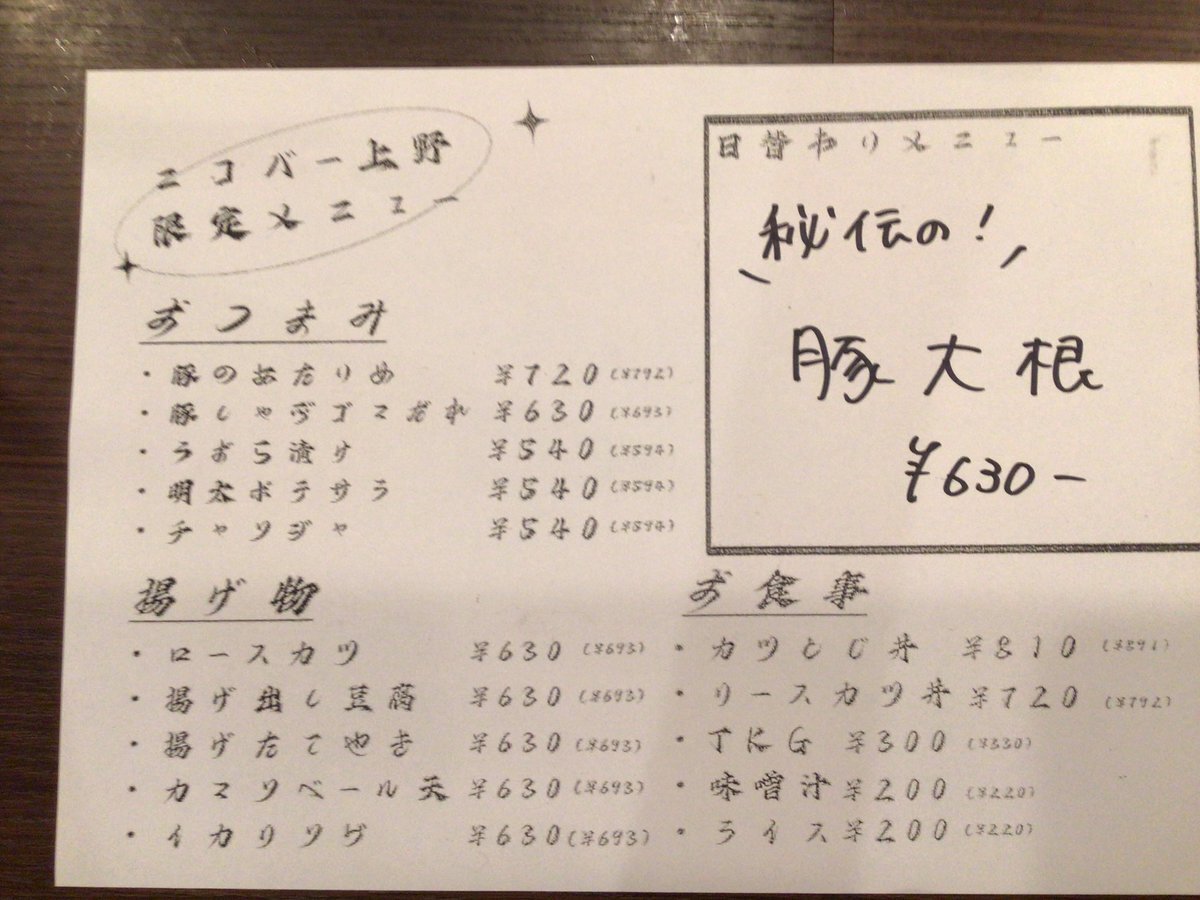 ニコバー上野
限定メニュー
おつまみ
・豚のあたりめ ¥720(¥792)
・豚しゃぶゴマだれ ¥630(¥693)
・うずら漬け ¥540(¥594)
・明太ポテサラ ¥540(¥594)
・チャンジャ ¥540(¥594)
揚げ物
・ロースカツ ¥630(¥693)
・揚げ出し豆腐 ¥630(¥693)
・揚げたこやき ¥630(¥693)
・カマンベール天 ¥630(¥693)
・イカリング ¥630(¥693)
日替わりメニュー
秘伝の!
豚大根
¥630-
お食事
・カツとじ丼 ¥810(¥891)
・ソースカツ丼 ¥720(¥792)
・TKG ¥300(¥330)
・味噌汁 ¥200(¥220)
・ライス ¥200(¥220)